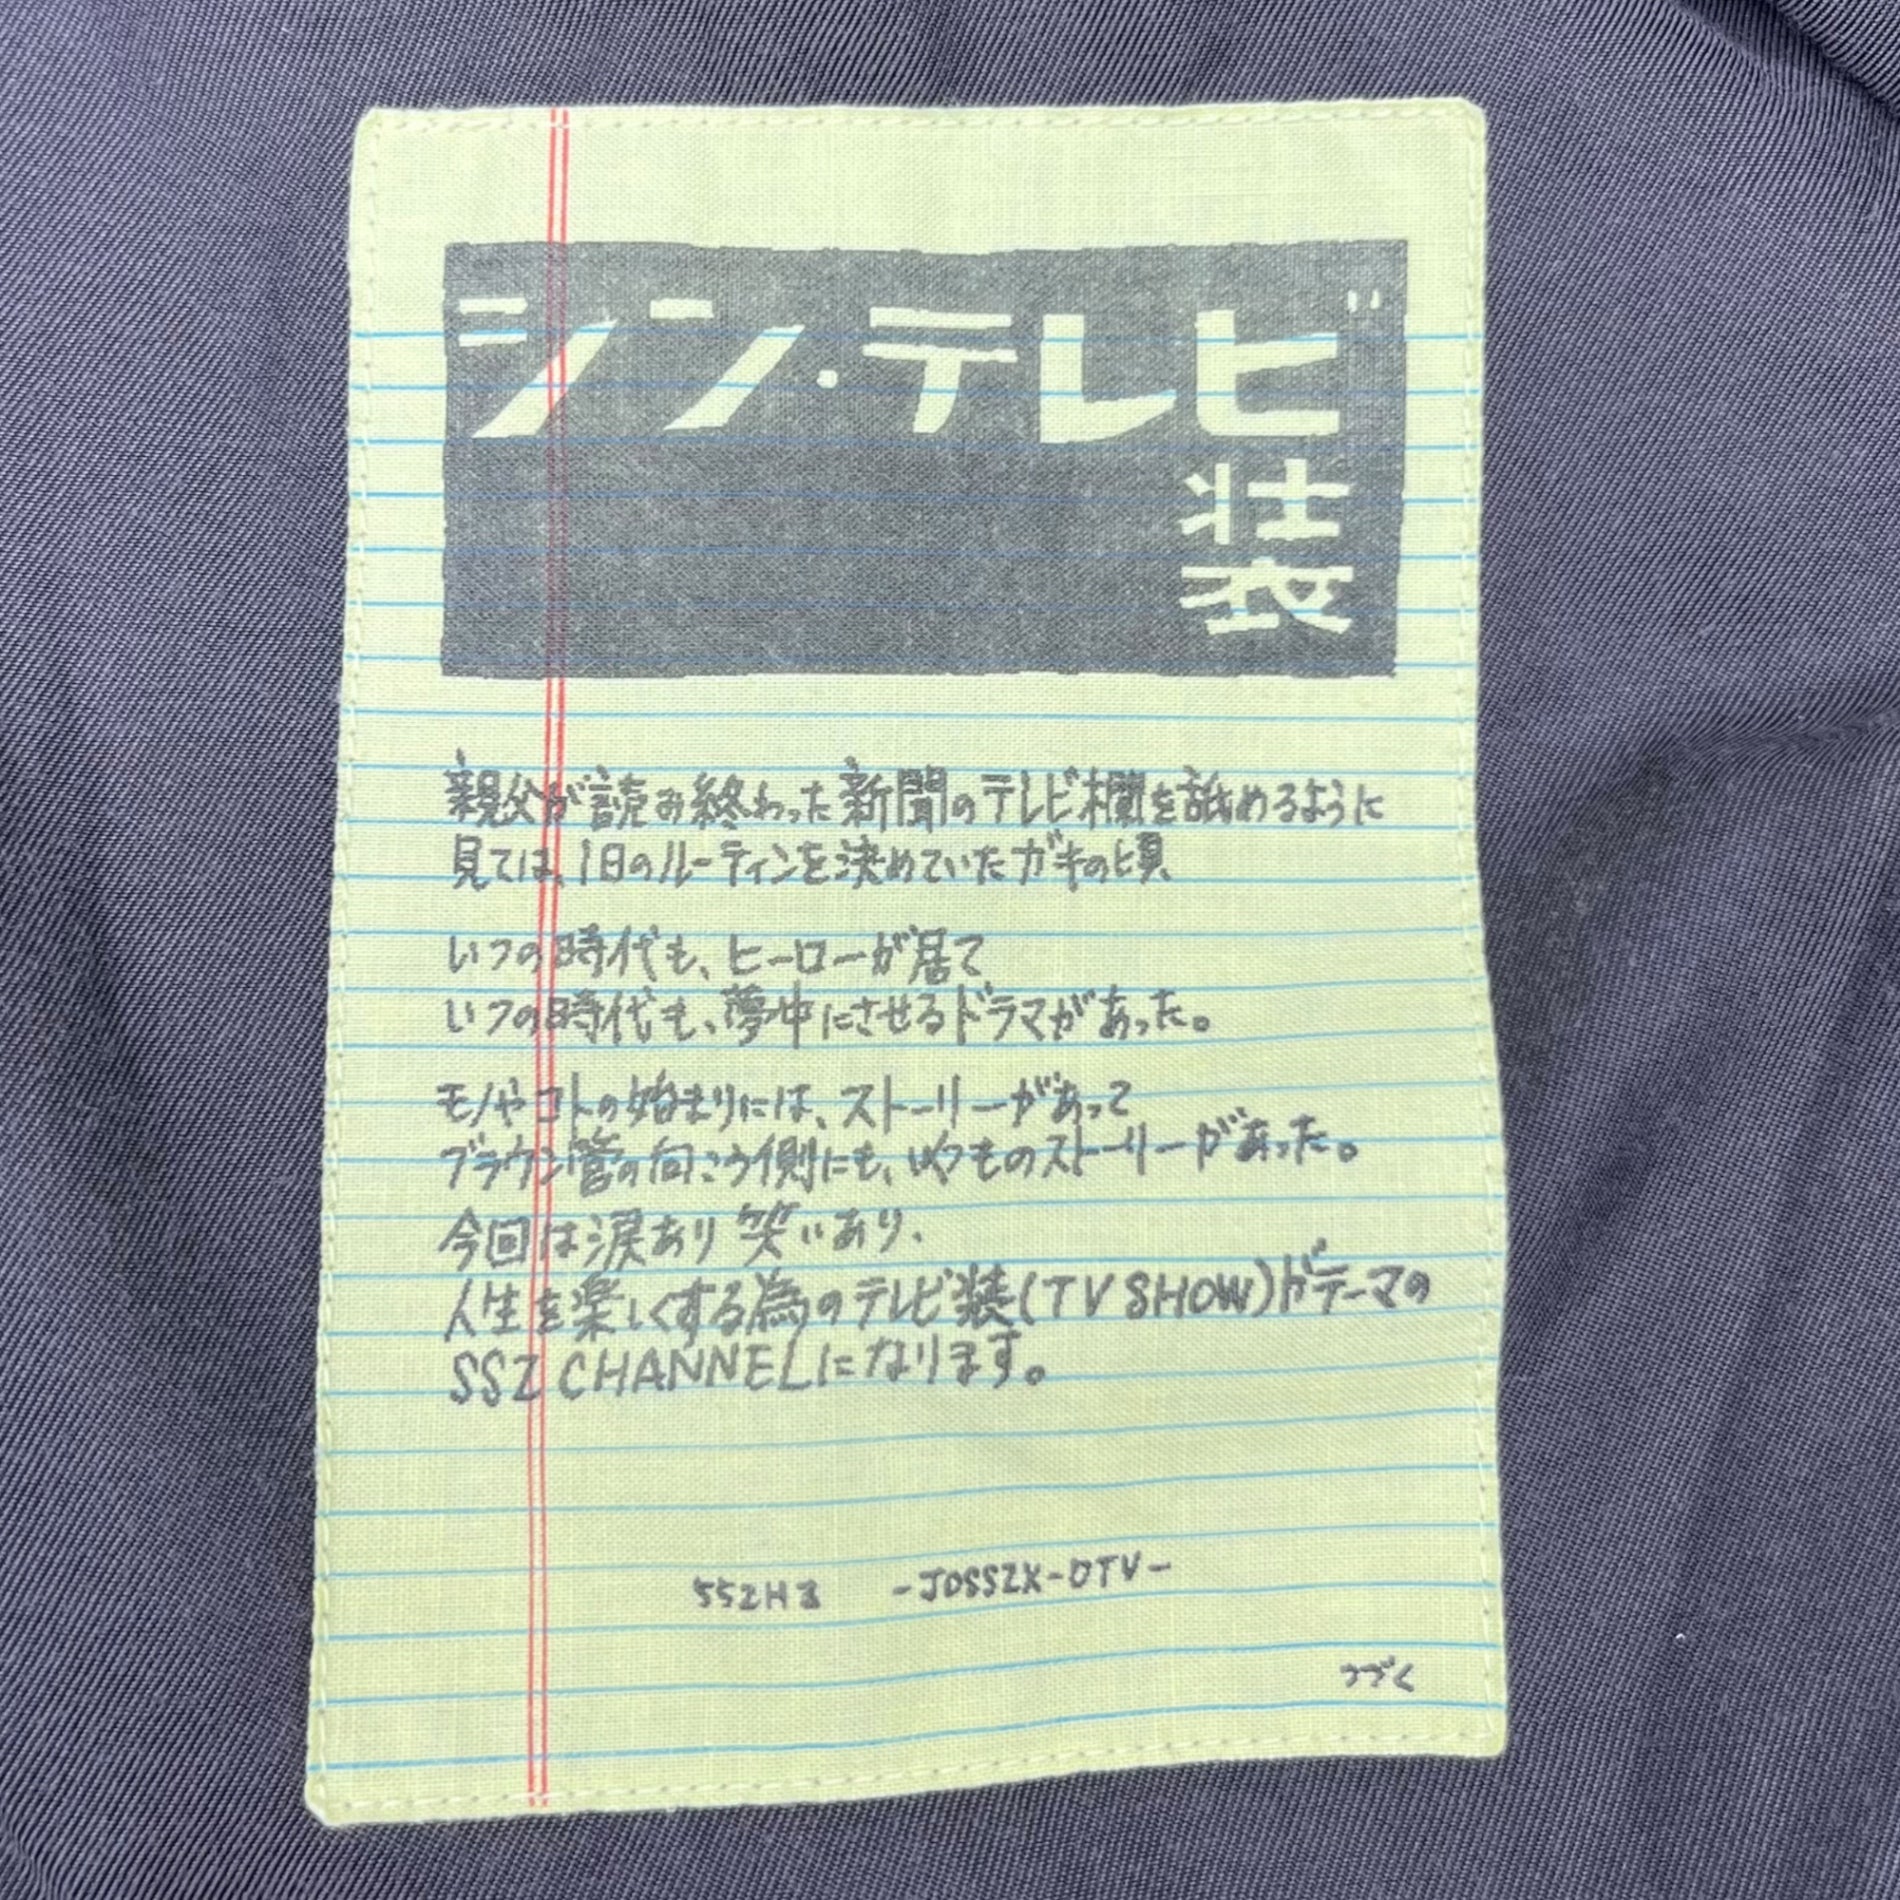 シン・テレビ
装
親父が読み終わった新聞のテレビ欄を舐めるように
見ては、1日のルーティンを決めていたガキの頃、
いつの時代も、ヒーローが居て
いつの時代も、夢中にさせるドラマがあった。
モノやコトの始まりには、ストーリーがあって
ブラウン管の向こう側にも、いくつものストーリーがあった。
今回は涙あり笑いあり、
人生を楽しくする為のテレビ装(TV SHOW)がテーマの
SSZ CHANNELになります。
-JOSSZX-DTV-
つづく